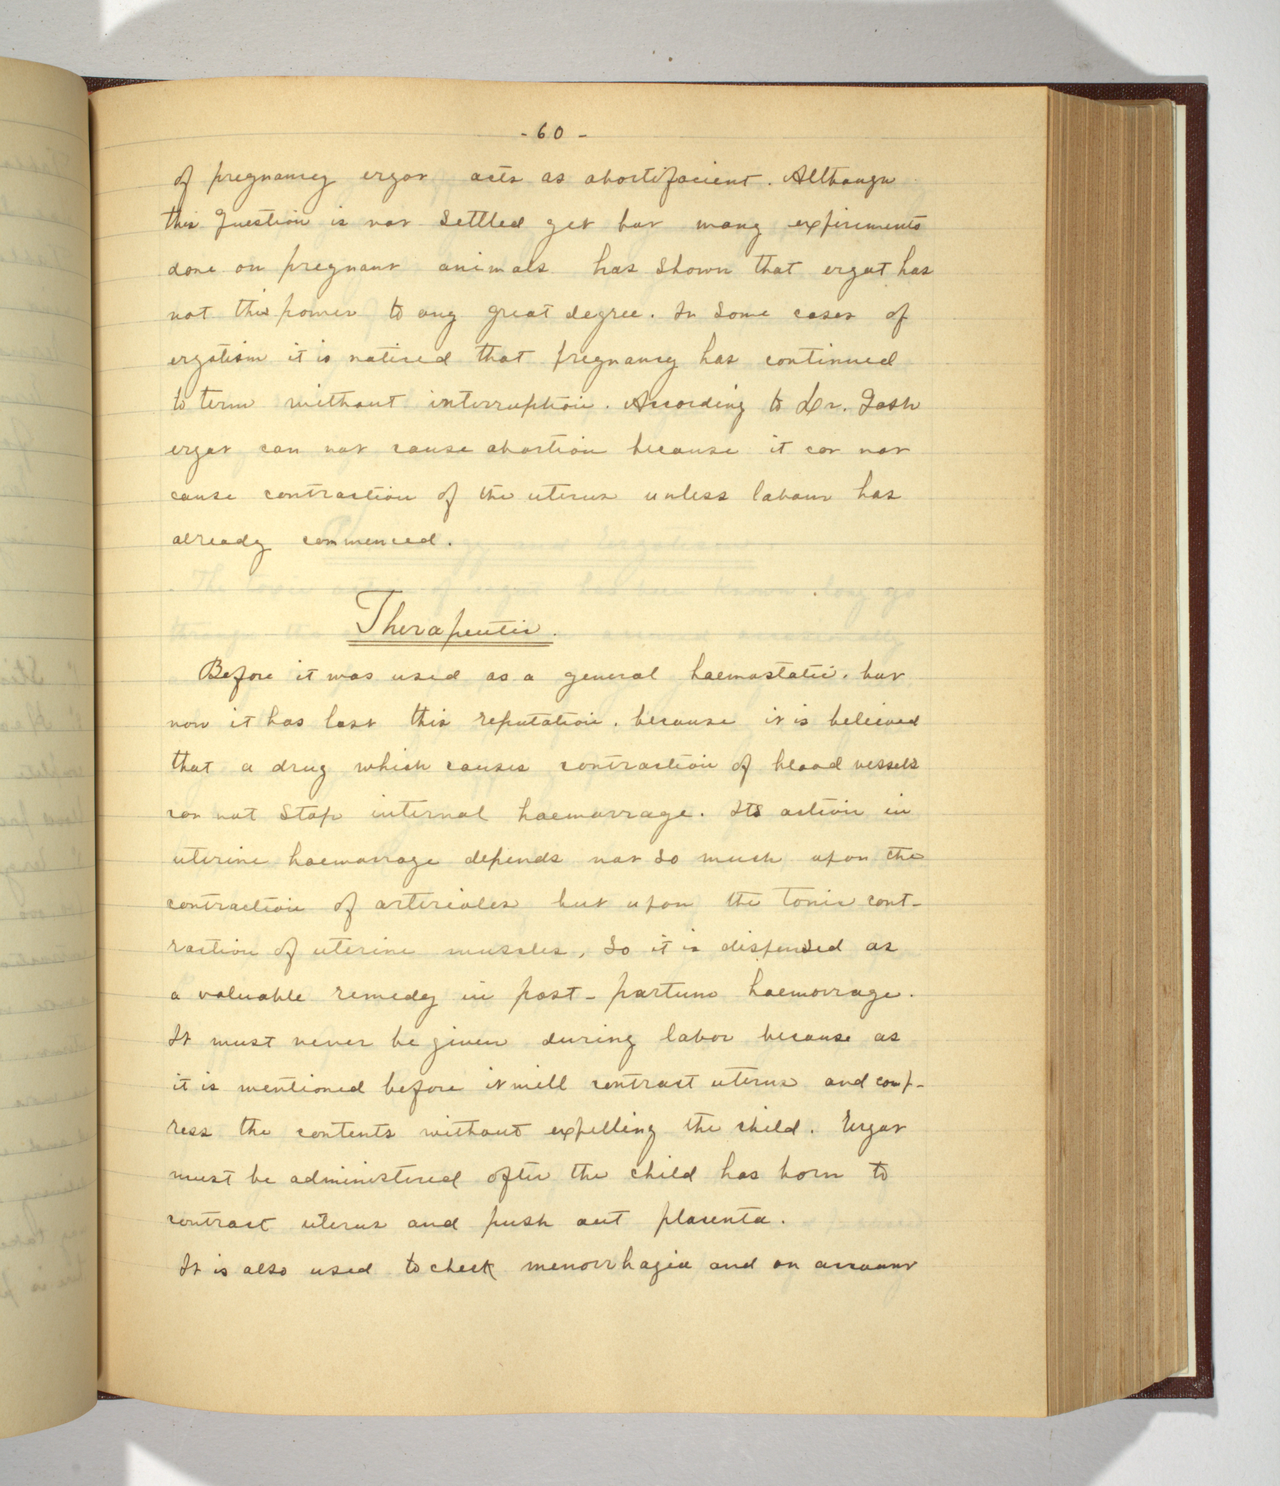 - 60 -
of pregnancy ergot acts as abortifacient. Although
this question is not settled yet but many expiriments
done on pregnant animals has shown that ergot has
not this power to any great degree. In some cases of
ergotism it is noticed that pregnancy has continued
to term without interruption. According to Dr.
ergot can not cause abortion because it can not
cause contraction of the uterus unless labour has
already commenced.
Therapeutic.
Before it was used as a general haemostatic. but
now it has lost this reputation. because it is believed
that a drug which causes contraction of blood vessels
can not stop internal haemorrage. Its action in
uterine haemorrage depends not so much upon the
contraction of arterioles but upon the tonic cont-
raction of uterine muscles, so it is dispensed as
a valuable remedy in post-partum haemorrage.
It must never be given during labor because as
it is mentioned before it will contract uterus and comp-
ress the contents without expelling the child. Ergot
must be administered after the child has born to
contract uterus and push out placenta.
It is also used to check menorrhagia and on account